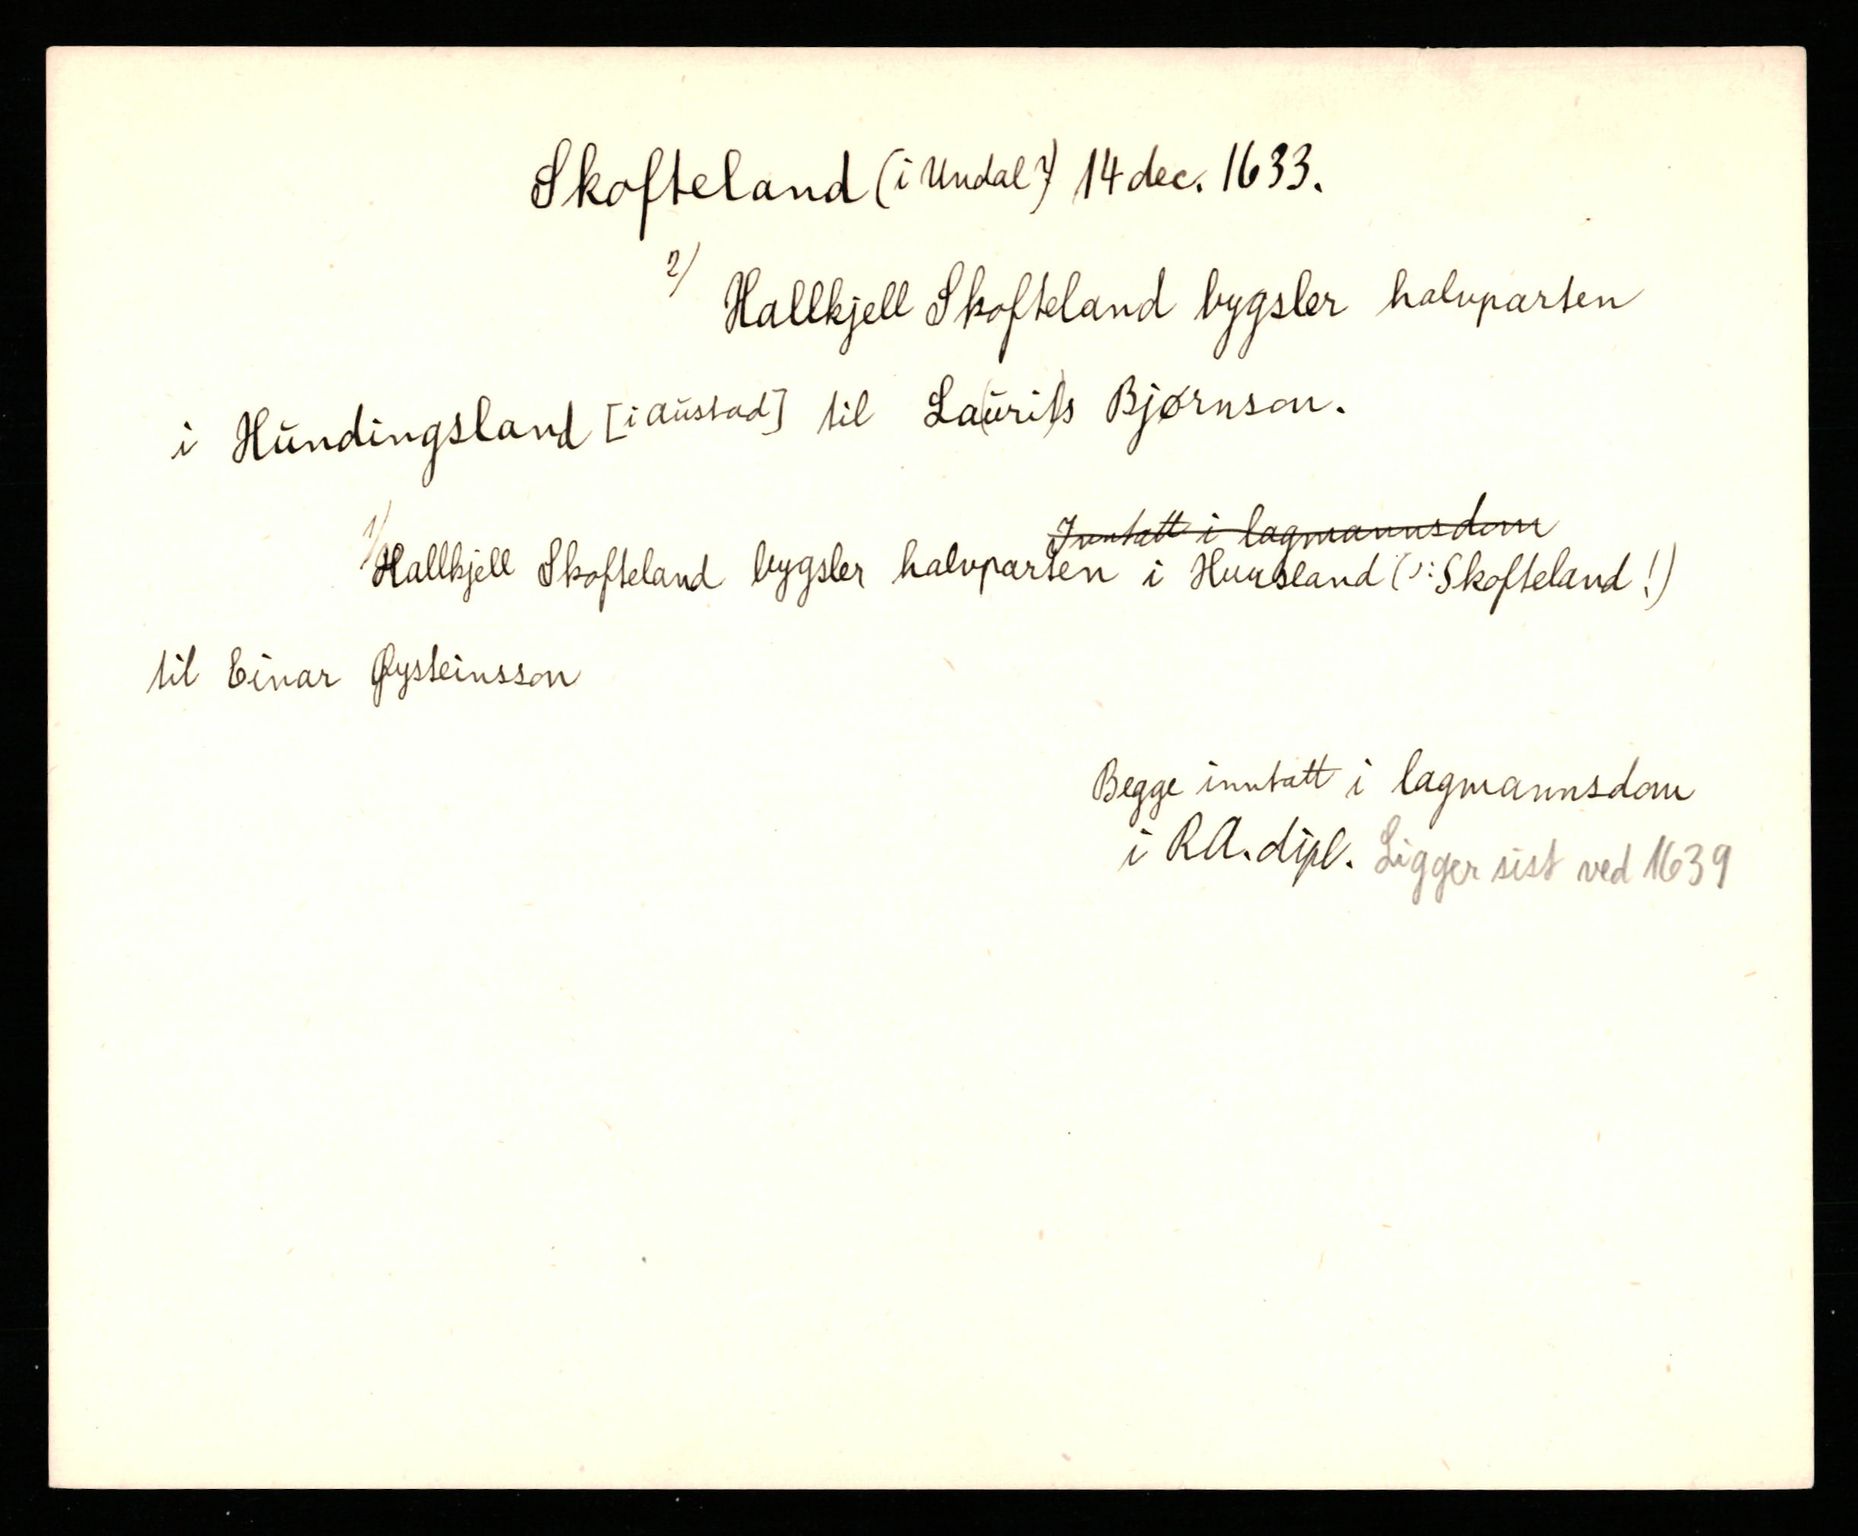 Skofteland (i Undal?) 14 dec. 1633.
2/ Hallkjell Skofteland bygsler halvparten
i Hundingsland [i Austad] til La(uri)s Bjørnson.
Inntatt i lagmannsdom
1/ Hallkjell Skofteland bygsler halvparten i Hursland (ɔ: Skofteland!)
til Einar Øysteinsson
Begge inntatt i lagmannsdom
i RA. dipl. Ligger sist ved 1639